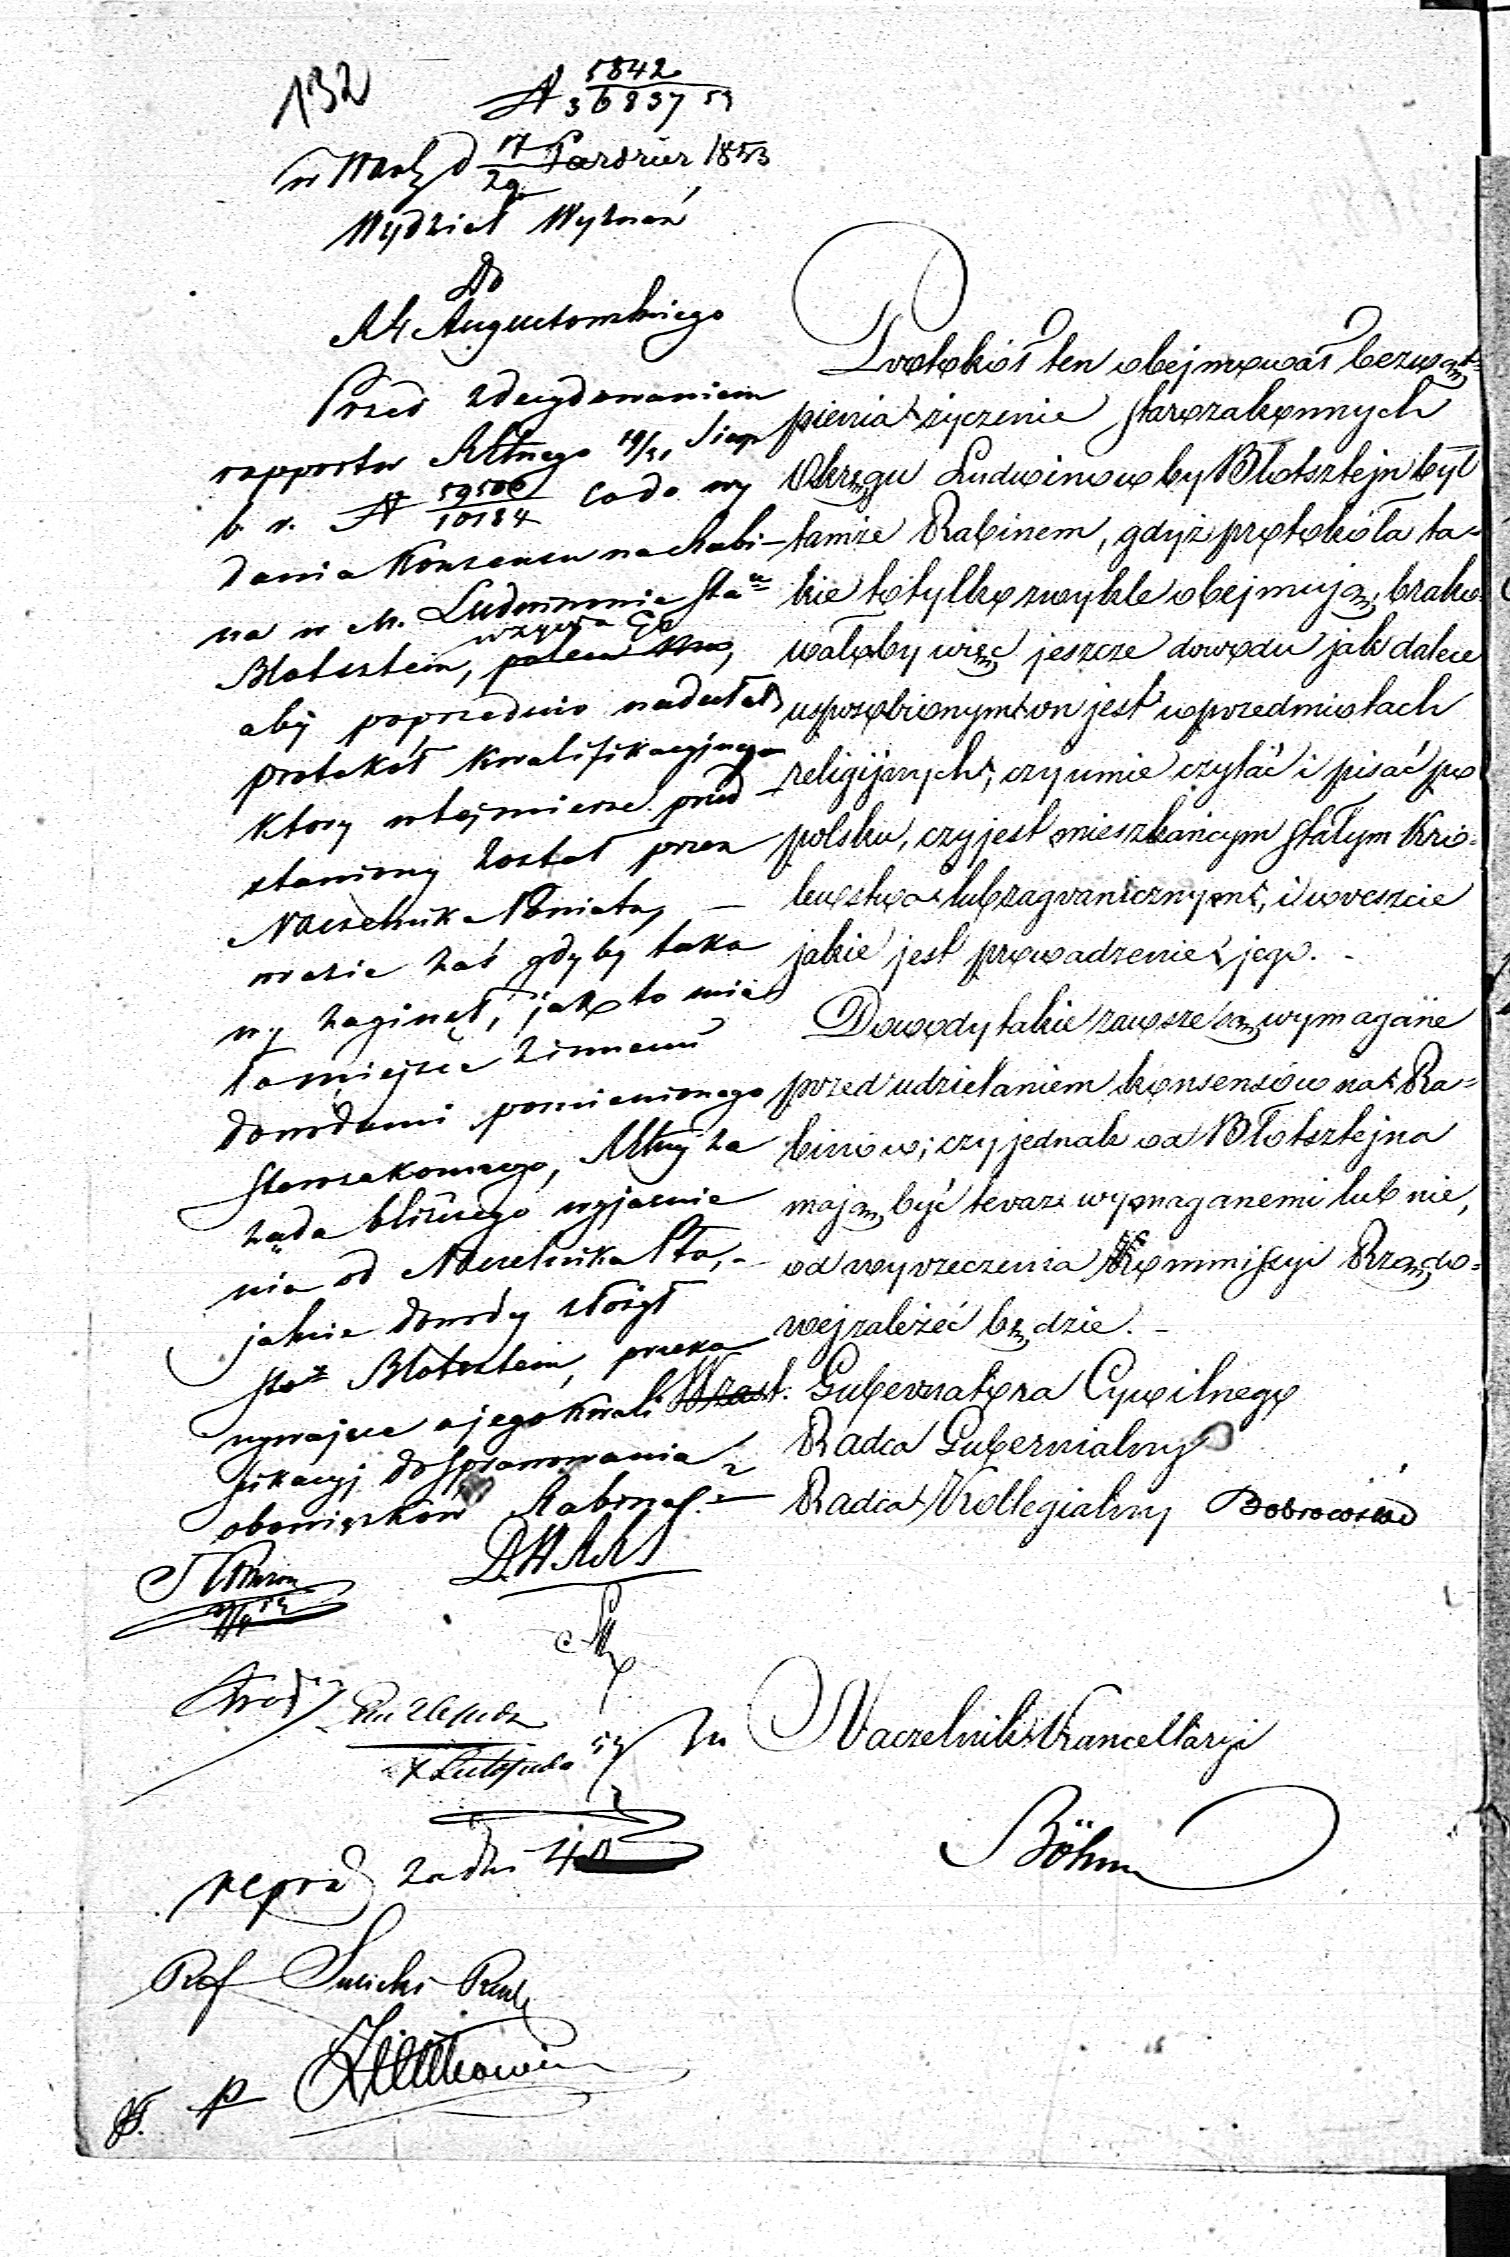 132
N 5842
36837 53
w Warsz d 17/29 Paździer 1853
Wydział Wyznań
Do
RG Augustowskiego
Przed zdecydowaniem
rapportu RGtnego 19/31 Sierp
b. r. N 59506/10184 co do wy
dania Konsensu na Rabi-
na w M. Ludwinowie Sta
wzywa Go
Blotsztein, poleca
aby poprzednio nadesłał
protokół kwalifikacyjny
ktory w tej mierze przed-
stawiony został przez
Naczelnika Powiatu, —
w razie zaś gdyby tako
wy zaginął, jak to mia
ło miejsce z innemi
dowodami pomienionego
Starozakonnego, RGtny za
żąda bliższego wyjaśnie
nia od Naczelnika Ptu, -
jakie dowody złożył
Blotsztein, przeko
nywające o jego kwali
fikacyi do sprawowania
obowiązków Rabina. —
D.W.R.R.
Listopada 53
Protokół ten obejmował bezwąt=
pienia życzenie Starozakonnych
Okręgu Ludwinowo by Błotsztejn był
tamże Rabinem, gdyż protokóła ta=
kie to tylko zwykle obejmują, brako
wałoby więc jeszcze dowodu jak dalece
usposobionym on jest w przedmiotach
religijnych, czy umie czytać i pisać po
polsku, czy jest mieszkańcym stałym Kró=
lestwa lub zagranicznym, i wreszcie
jakie jest prowadzenie jego. -
Dowody takie zawsze są wymagane
przed udzielaniem konsensów na Ra=
binów; czy jednak od Błotsztejna
mają być teraz wymaganemi lub nie,
od wyrzeczenia Kommissyi Rządo=
wej zależeć będzie. -
Gubernatora Cywilnego
Radca Gubernialny
Radca Kollegialny
Naczelnik Kancellaryi
Böhm